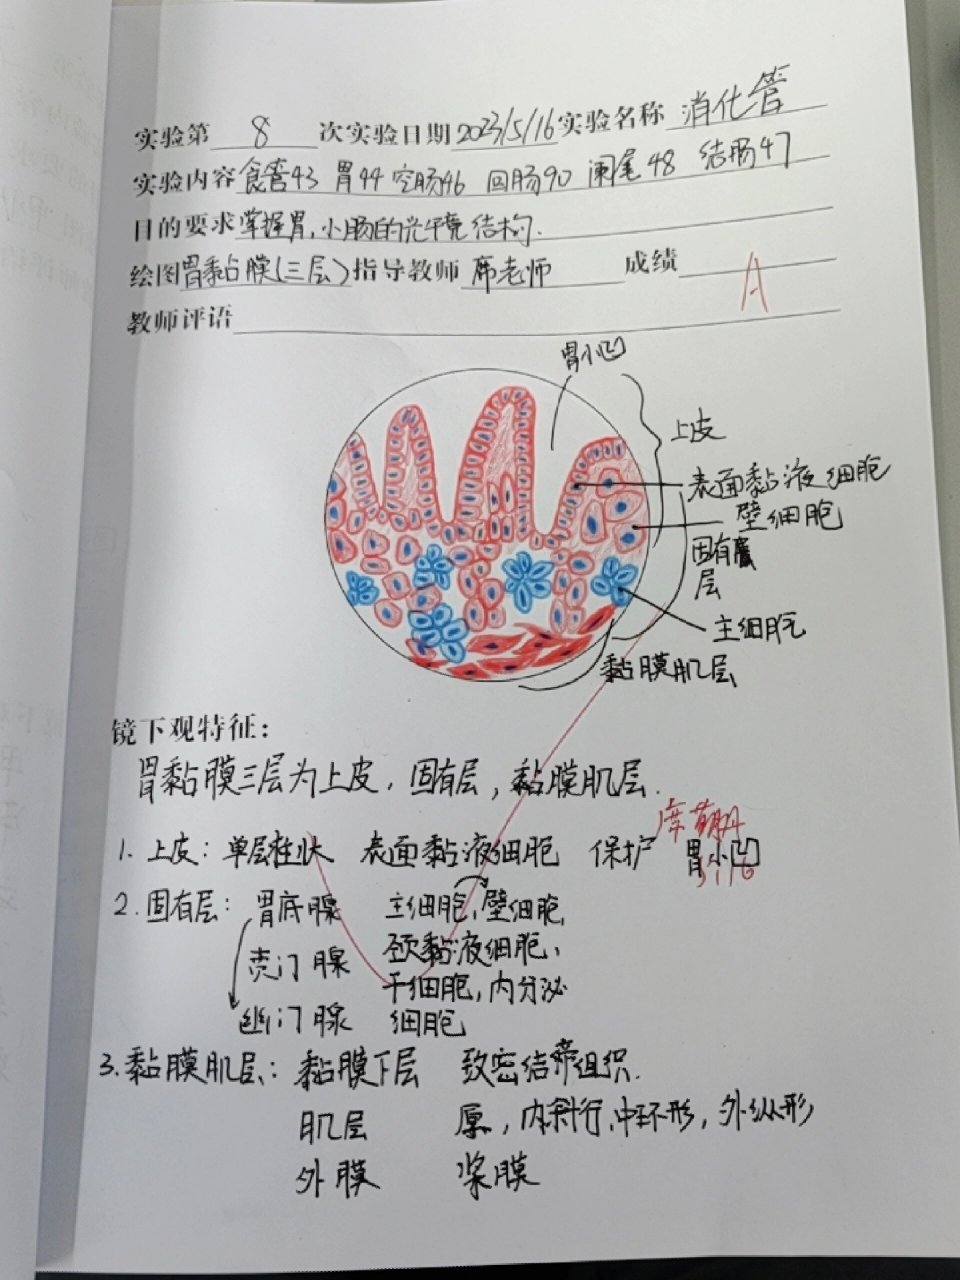 实验第 8 次实验日期 2023/5/16 实验名称 消化管
实验内容 食管43 胃44 空肠46 回肠90 阑尾48 结肠47
目的要求 掌握胃,小肠的光平镜结构.
绘图 胃黏膜(三层) 指导教师 席老师 成绩 A
教师评语
胃小凹
上皮
表面黏液细胞
壁细胞
固有层
主细胞
黏膜肌层
镜下观特征:
胃黏膜三层为上皮,固有层,黏膜肌层.
1. 上皮: 单层柱状 表面黏液细胞 保护 胃小凹
2. 固有层: 胃底腺 主细胞,壁细胞
贲门腺 颈黏液细胞、
干细胞,内分泌
幽门腺 细胞
3. 黏膜肌层: 黏膜下层 致密结缔组织.
肌层 厚,内斜行,中环形,外纵形
外膜 浆膜